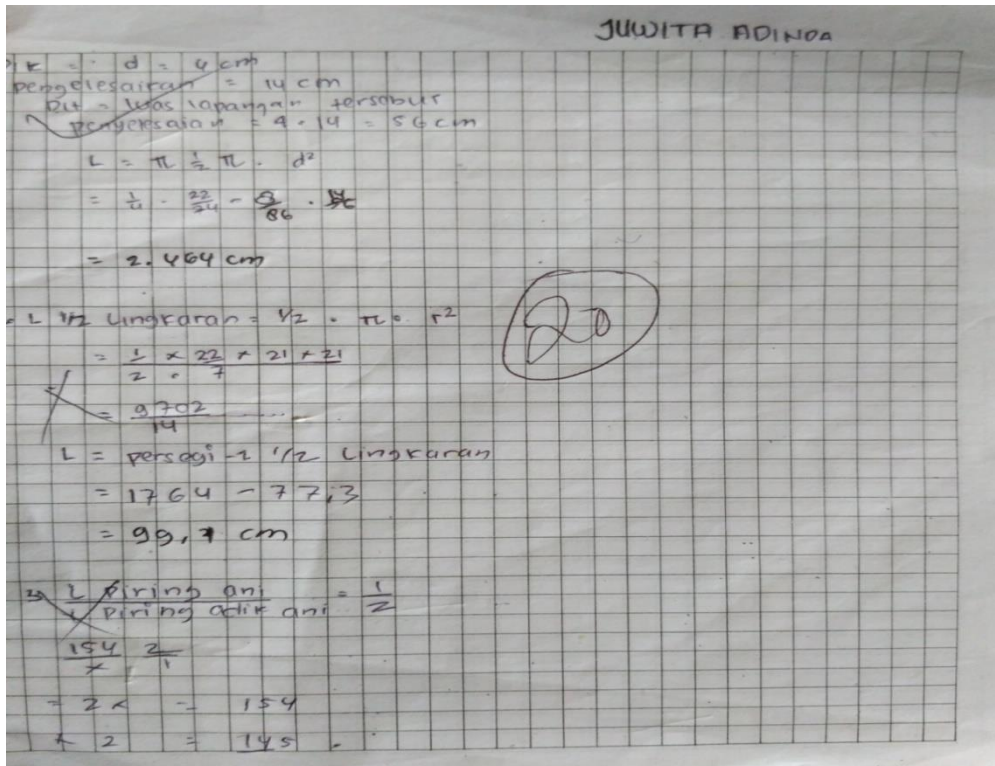 JUWITA ADINDA
Dik = d = 4 cm
pengelesairan = 14 cm
Dit = luas lapangan tersebut
penyelesaian = 4 . 14 = 56 cm
L = π 1/2 π . d²
= 1/4 . 22/24 - /86 .
= 2.464 cm
L 1/2 Lingkaran = 1/2 . π . r²
20
= 1/2 × 22/7 × 21 × 21
= 9702/14
L = persegi - L 1/2 Lingkaran
= 1764 - 77,3
= 99,7 cm
L piring ani / L piring adik ani = 1/2
154/x 2/1
= 2x = 154
x 2 = 145